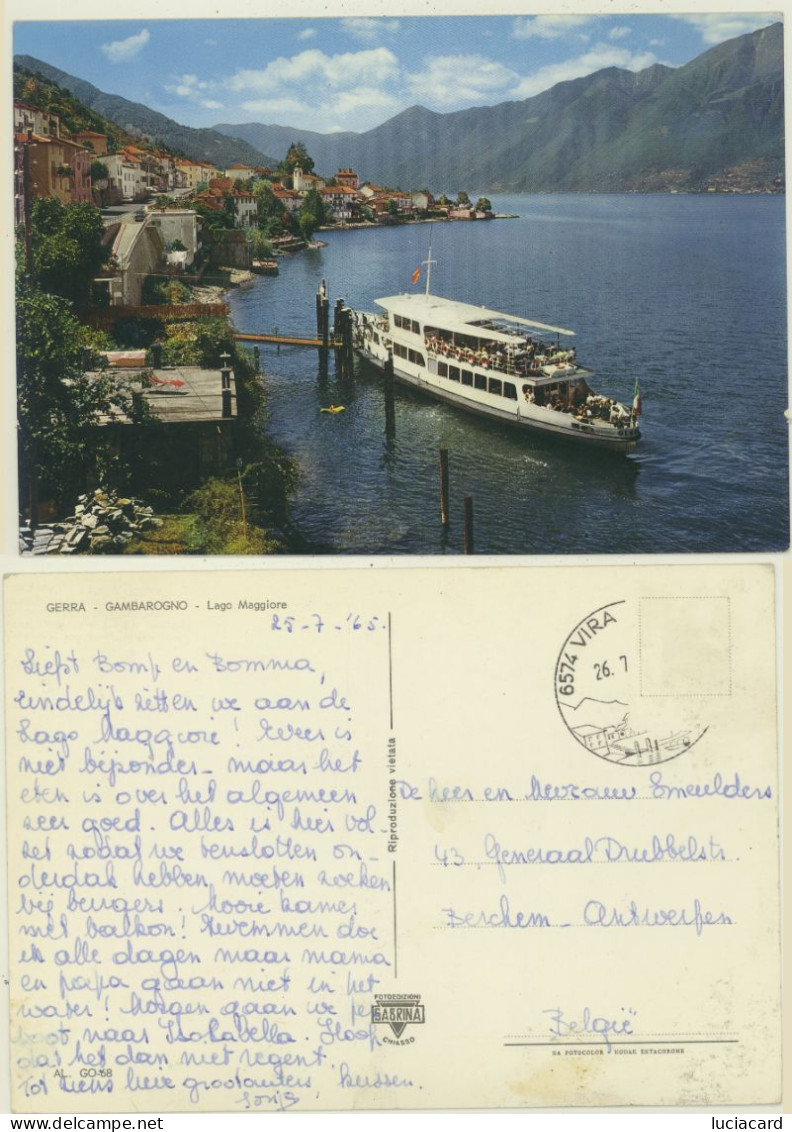 GERRA - GAMBAROGNO - Lago Maggiore
25-7-'65.
Liefst Bomp en Bomma,
Eindelijk zitten we aan de
Lago Maggiore! Weer is
niet bijzonder - maar het
eten is over het algemeen
zeer goed. Alles is hier vol-
zet zodat we tenslotte on-
derdak hebben moeten zoeken
bij burgers. Mooie kamer
met balkon! Zwemmen doe
ik alle dagen maar mama
en papa gaan niet in het
water! Morgen gaan we per
boot naar Isola Bella. Hoop
dat het dan niet regent.
Tot ziens lieve grootouders kussen.
AL. GO-68
Riproduzione vietata
6574 VIRA
26.7
De heer en Mevrouw Smeulders
43, Generaal Drubbelstr.
Berchem - Antwerpen
België
FOTOEDIZIONI
SABRINA
CHIASSO
DA FOTOCOLOR - KODAK EKTACHROME
luciacard